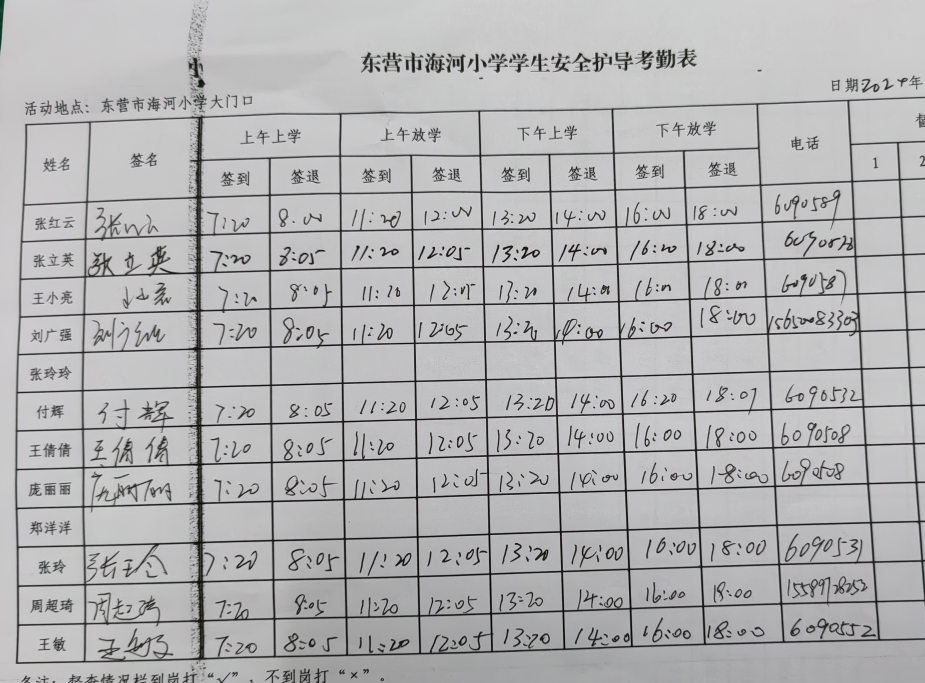 东营市海河小学学生安全护导考勤表
活动地点：东营市海河小学大门口 日期2024年
姓名 签名 上午上学 上午放学 下午上学 下午放学 电话
签到 签退 签到 签退 签到 签退 签到 签退 1 2
张红云 张红云 7:20 8:00 11:20 12:00 13:20 14:00 16:00 18:00 6090589
张立英 张立英 7:20 8:05 11:20 12:05 13:20 14:00 16:20 18:00
王小亮 王小亮 7:20 8:05 11:20 12:05 13:20 14:00 16:00 18:00 6090587
刘广强 刘广强 7:20 8:05 11:20 12:05 13:20 14:00 16:00 18:00 15650083303
张玲玲
付辉 付辉 7:20 8:05 11:20 12:05 13:20 14:00 16:20 18:07 6090532
王倩倩 王倩倩 7:20 8:05 11:20 12:05 13:20 14:00 16:00 18:00 6090508
庞丽丽 庞丽丽 7:20 8:05 11:20 12:05 13:20 14:00 16:00 18:00 6090508
郑洋洋
张玲 张玲 7:20 8:05 11:20 12:05 13:20 14:00 16:00 18:00 6090531
周超琦 周超琦 7:20 8:05 11:20 12:05 13:20 14:00 16:00 18:00
王敏 王敏 7:20 8:05 11:20 12:05 13:20 14:00 16:00 18:00 6090552
备注：督查情况栏到岗打“√”，不到岗打“×”。